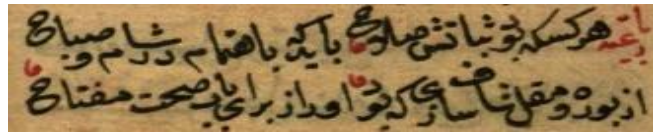 رباعیه هرکسکه بو ثباتش باید که باهتمام در شام و صباح
از بوره و مقل شاف سازی که بود او را ز برای صحت مفتاح